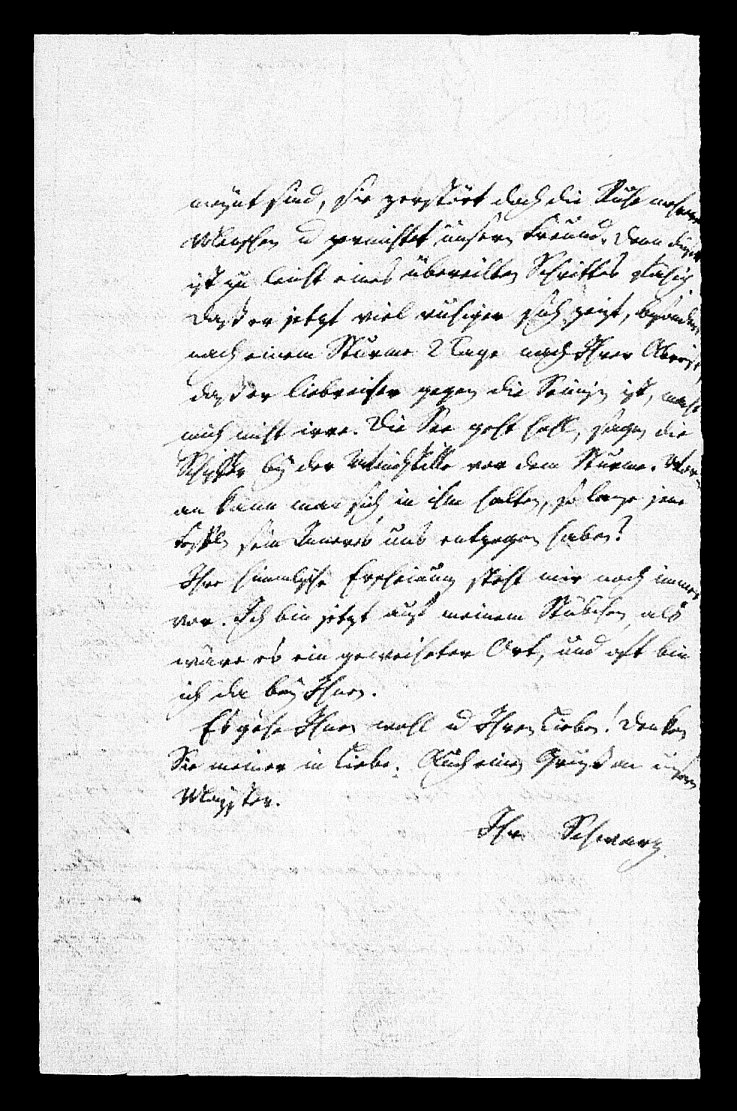 meynt sind, sie zerstört doch die Ruhe mehrerer
Menschen u vernichtet unsern Freund. Denn dieser
ist zu leicht eines übereilten Schrittes fähig.
Daß er jetzt viel ruhiger sich zeigt, besonders
nach einem Sturme 2 Tage nach Ihrer Abreise,
daß er liebreicher gegen die Seinigen ist, macht
mich nicht irre. Die See geht hoch, sagen die
Schiffer bey der Windstille vor dem Sturme. Wor-
an kann man sich in ihm halten, so lange jene
sein Inneres uns entgegen haben?
Ihre himmlische Erscheinung steht mir noch immer
vor. Ich bin jetzt auf meinem Stübchen, als
wäre es ein geweiheter Ort, und oft bin
ich da bey Ihnen.
Es gehe Ihnen wohl u Ihren Lieben! Denken
Sie meiner in Liebe. Auch einen Gruß an unsern
Meister.
Ihr Schwarz.